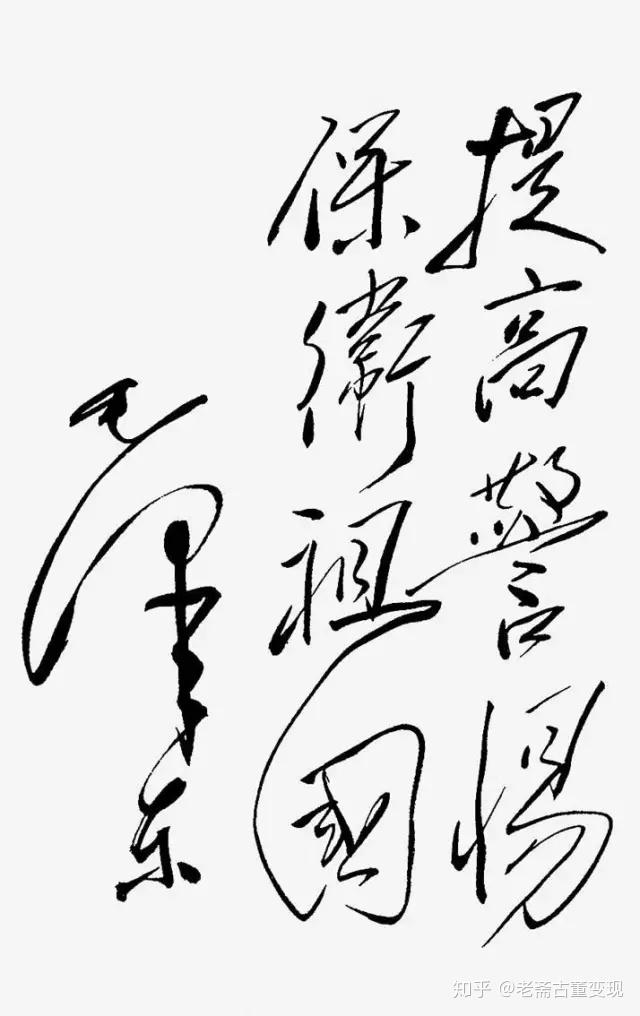 提高警惕
保衛祖國
毛澤东
知乎 @老斋古董变现